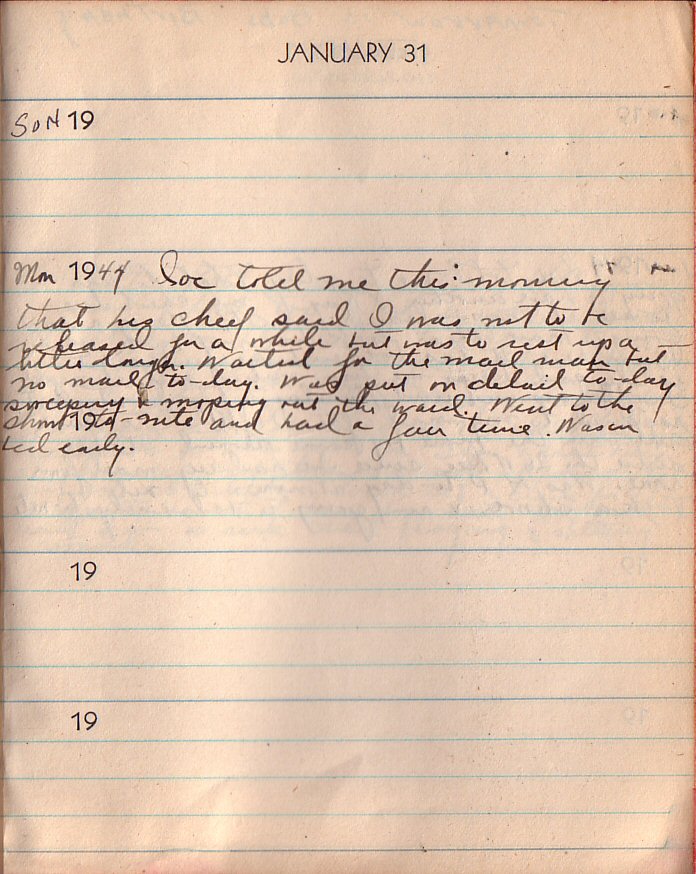 JANUARY 31
SUN 19
Mon 1944 Doc told me this morning
that his chief said I was not to be
released for a while but was to rest up a
little longer. Waited for the mail man but
no mail to-day. Was put on detail to-day
sweeping & moping out the ward. Went to the
19
show to-nite and had a fair time. Was in
bed early.
19
19